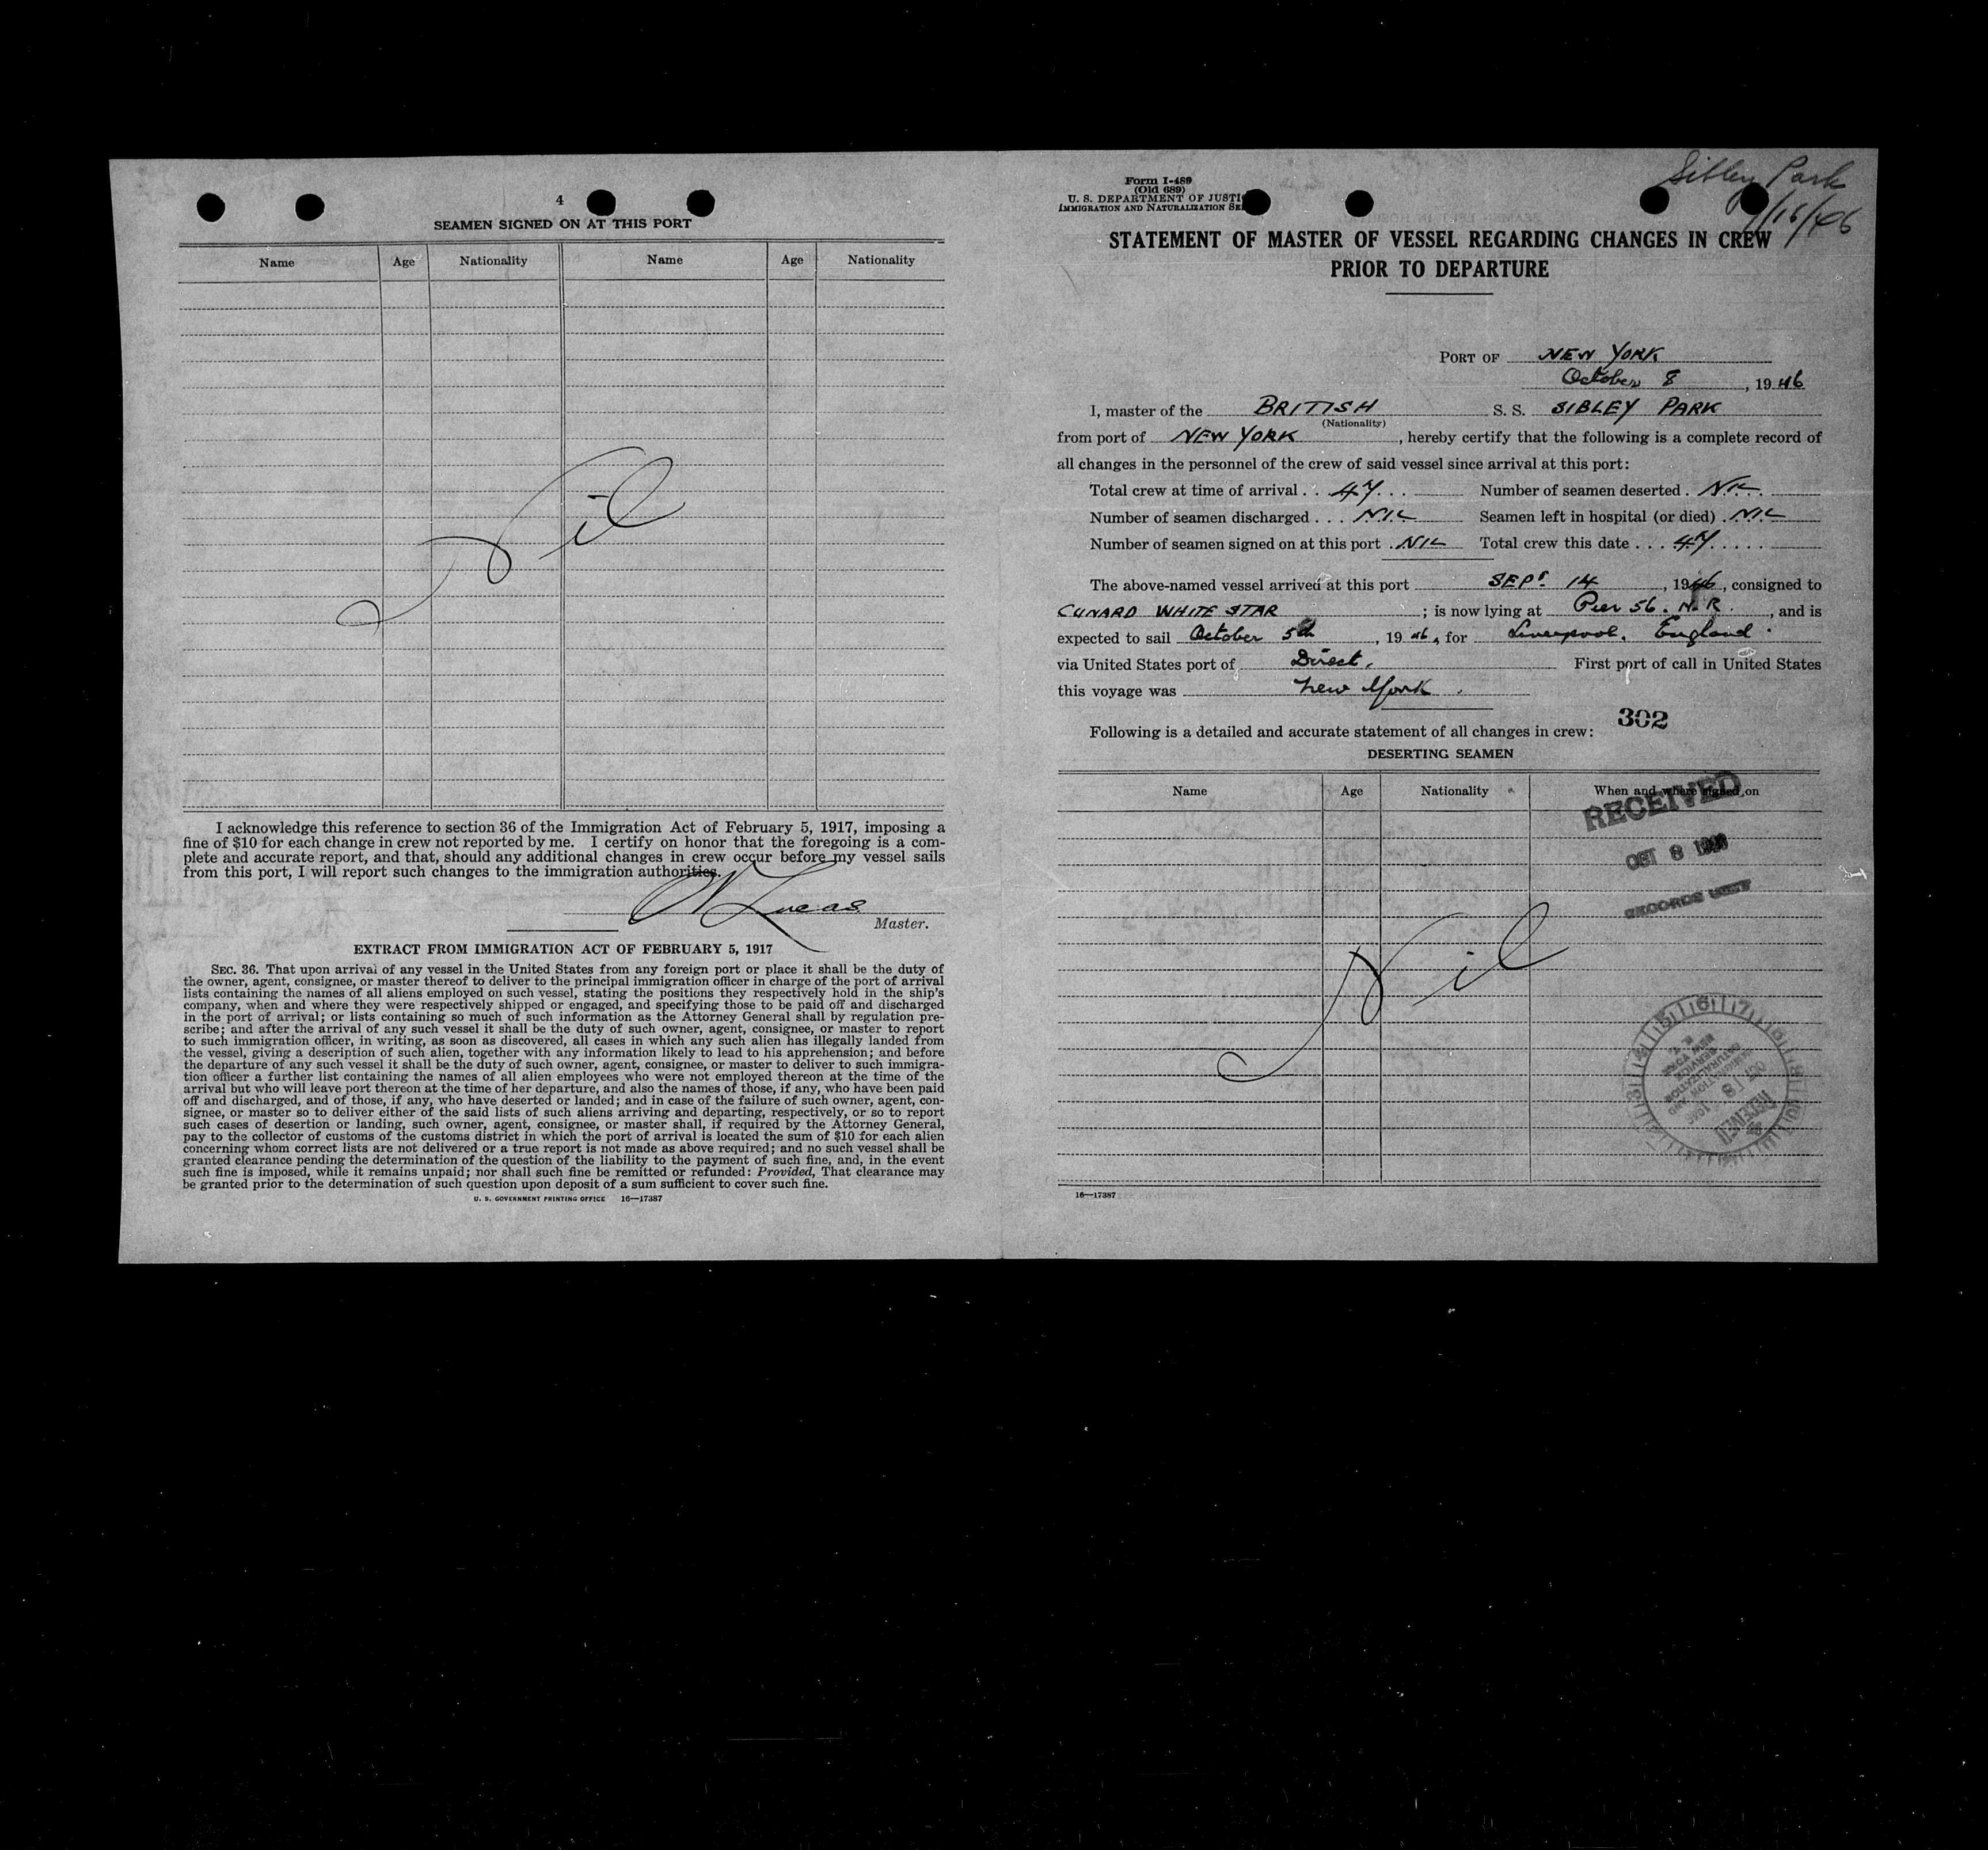 4
SEAMEN SIGNED ON AT THIS PORT
Name Age Nationality Name Age Nationality
Nil
I acknowledge this reference to section 36 of the Immigration Act of February 5, 1917, imposing a
fine of $10 for each change in crew not reported by me. I certify on honor that the foregoing is a com-
plete and accurate report, and that, should any additional changes in crew occur before my vessel sails
from this port, I will report such changes to the immigration authorities.
W Lucas
Master.
EXTRACT FROM IMMIGRATION ACT OF FEBRUARY 5, 1917
SEC. 36. That upon arrival of any vessel in the United States from any foreign port or place it shall be the duty of
the owner, agent, consignee, or master thereof to deliver to the principal immigration officer in charge of the port of arrival
lists containing the names of all aliens employed on such vessel, stating the positions they respectively hold in the ship's
company, when and where they were respectively shipped or engaged, and specifying those to be paid off and discharged
in the port of arrival; or lists containing so much of such information as the Attorney General shall by regulation pre-
scribe; and after the arrival of any such vessel it shall be the duty of such owner, agent, consignee, or master to report
to such immigration officer, in writing, as soon as discovered, all cases in which any such alien has illegally landed from
the vessel, giving a description of such alien, together with any information likely to lead to his apprehension; and before
the departure of any such vessel it shall be the duty of such owner, agent, consignee, or master to deliver to such immigra-
tion officer a further list containing the names of all alien employees who were not employed thereon at the time of the
arrival but who will leave port thereon at the time of her departure, and also the names of those, if any, who have been paid
off and discharged, and of those, if any, who have deserted or landed; and in case of the failure of such owner, agent, con-
signee, or master so to deliver either of the said lists of such aliens arriving and departing, respectively, or so to report
such cases of desertion or landing, such owner, agent, consignee, or master shall, if required by the Attorney General,
pay to the collector of customs of the customs district in which the port of arrival is located the sum of $10 for each alien
concerning whom correct lists are not delivered or a true report is not made as above required; and no such vessel shall be
granted clearance pending the determination of the question of the liability to the payment of such fine, and, in the event
such fine is imposed, while it remains unpaid; nor shall such fine be remitted or refunded: Provided, That clearance may
be granted prior to the determination of such question upon deposit of a sum sufficient to cover such fine.
U. S. GOVERNMENT PRINTING OFFICE 16—17387
Form I-489
(Old 689)
U. S. DEPARTMENT OF JUSTI
IMMIGRATION AND NATURALIZATION SE
Sibley Park
STATEMENT OF MASTER OF VESSEL REGARDING CHANGES IN CREW
PRIOR TO DEPARTURE
PORT OF NEW YORK
October 8, 1946
I, master of the BRITISH S. S. SIBLEY PARK
(Nationality)
from port of NEW YORK, hereby certify that the following is a complete record of
all changes in the personnel of the crew of said vessel since arrival at this port:
Total crew at time of arrival . . 47 . . . Number of seamen deserted . NIL
Number of seamen discharged . . . NIL Seamen left in hospital (or died) . NIL
Number of seamen signed on at this port . NIL Total crew this date . . . 47 . . . . .
The above-named vessel arrived at this port SEPT. 14, 1946, consigned to
CUNARD WHITE STAR; is now lying at Pier 56. N. R., and is
expected to sail October 5th, 1946, for Liverpool, England.
via United States port of Direct. First port of call in United States
this voyage was New York.
302
Following is a detailed and accurate statement of all changes in crew:
DESERTING SEAMEN
Name Age Nationality When and where signed on
RECEIVED
OCT 8 1946
RECORDS UNIT
Nil
RECEIVED
OCT 8 1946
16—17387